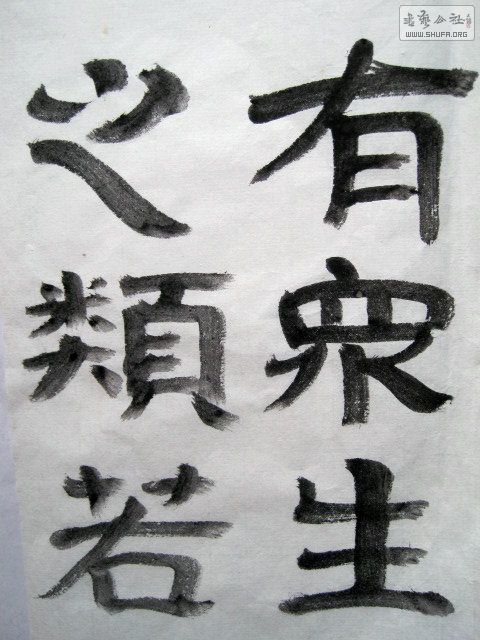 有眾生
之類若
書藝公社
WWW.SHUFA.ORG